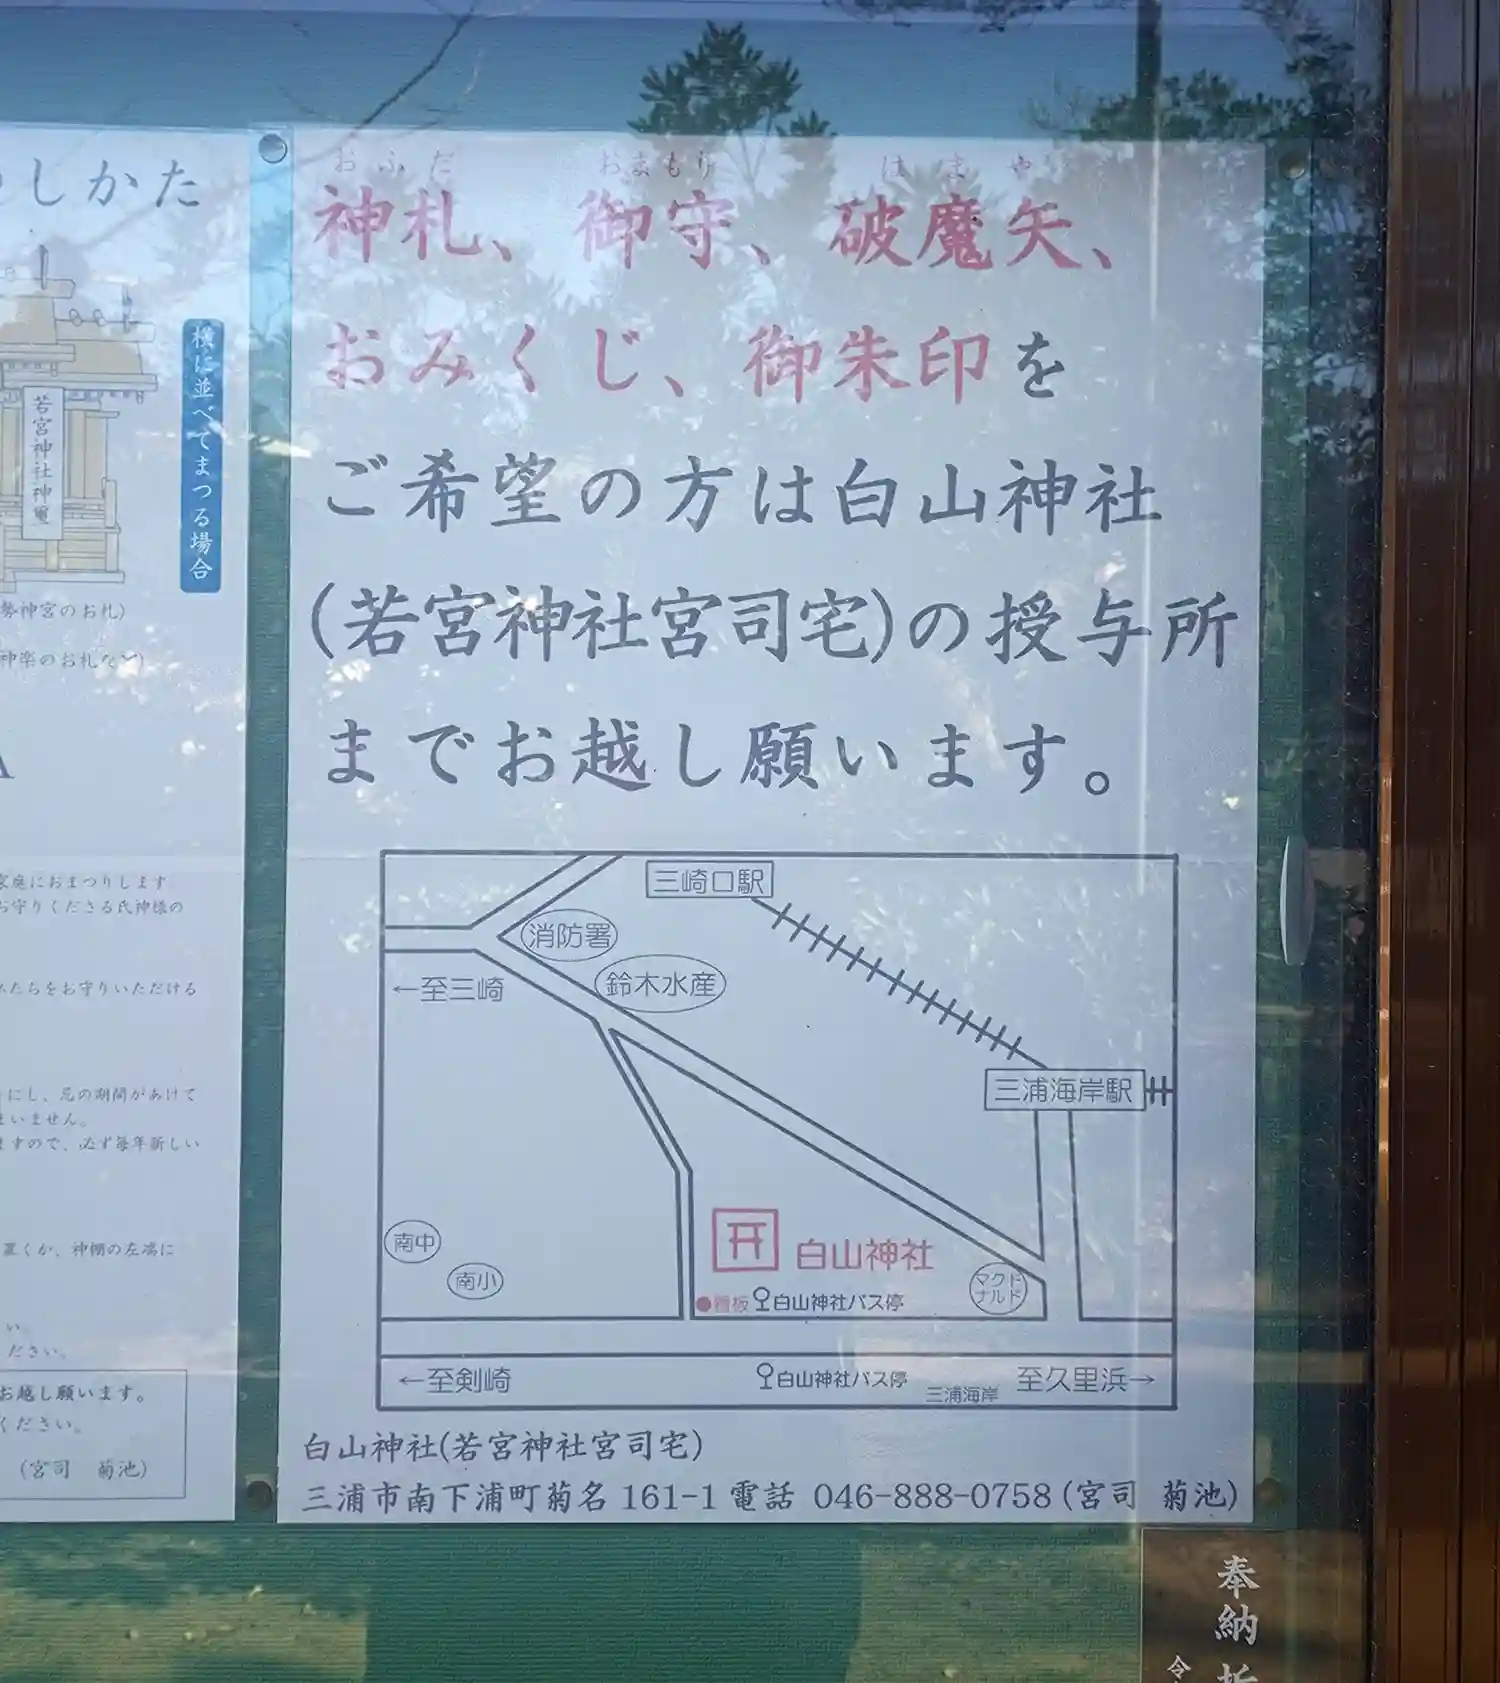 しかた
若宮神社神璽
横に並べてまつる場合
勢神宮のお札)
神楽のお札など)
家庭におまつりします
お守りくださる氏神様の
たちをお守りいただける
にし、忌の期間があけて
まいません。
ますので、必ず毎年新しい
置くか、神棚の左端に
い。
ださい。
お越し願います。
ください。
(宮司 菊池)
おふだ おまもり はまや
神札、御守、破魔矢、
おみくじ、御朱印を
ご希望の方は白山神社
(若宮神社宮司宅)の授与所
までお越し願います。
三崎口駅
消防署
鈴木水産
←至三崎
三浦海岸駅
南中
南小
白山神社
●看板 白山神社バス停
マクド
ナルド
←至剣崎
白山神社バス停
三浦海岸
至久里浜→
白山神社(若宮神社宮司宅)
三浦市南下浦町菊名 161-1 電話 046-888-0758 (宮司 菊池)
奉納
令